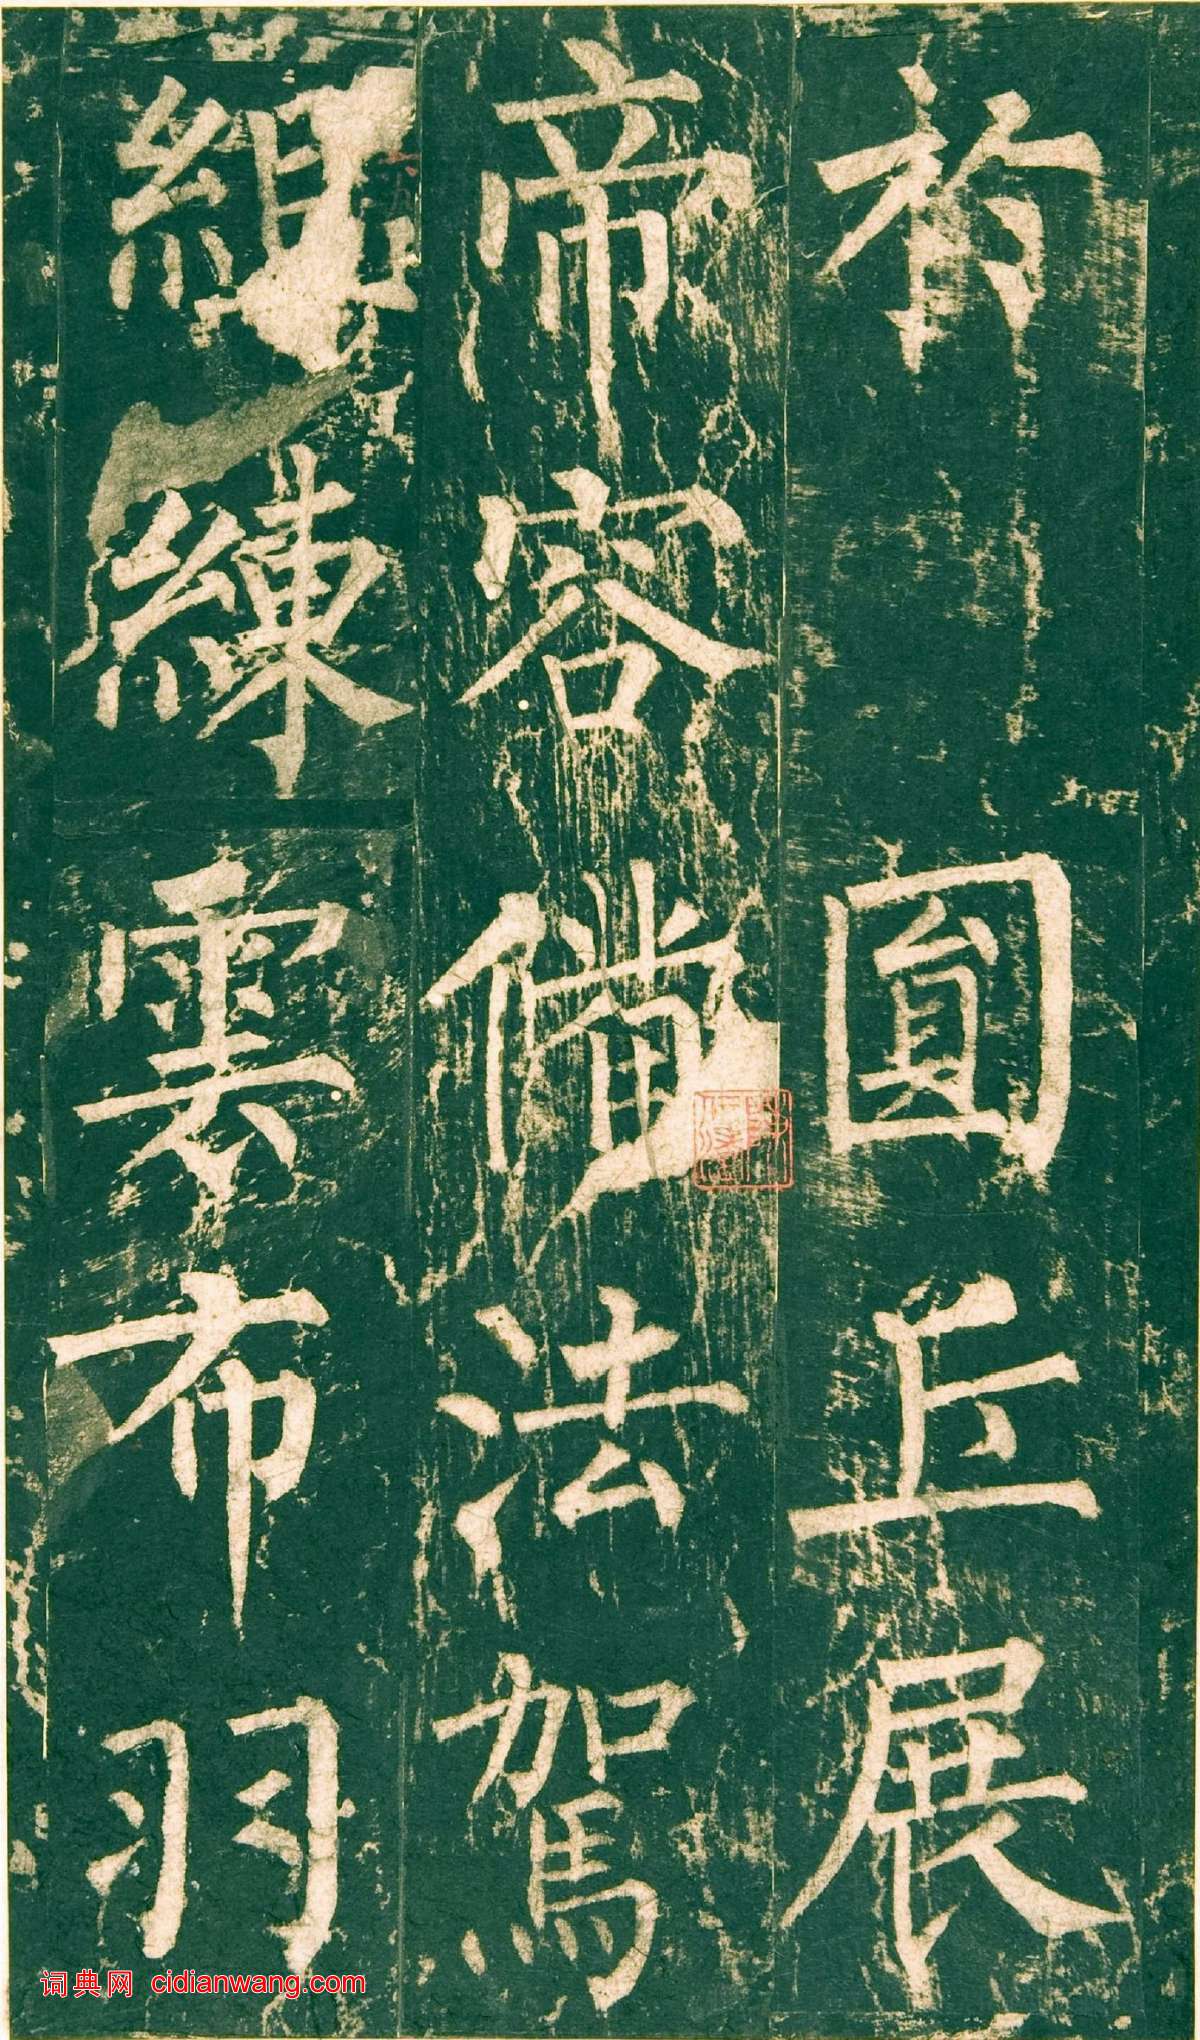 於圓丘展
帝容偕法駕
組練雲布羽
词典网 cidianwang.com